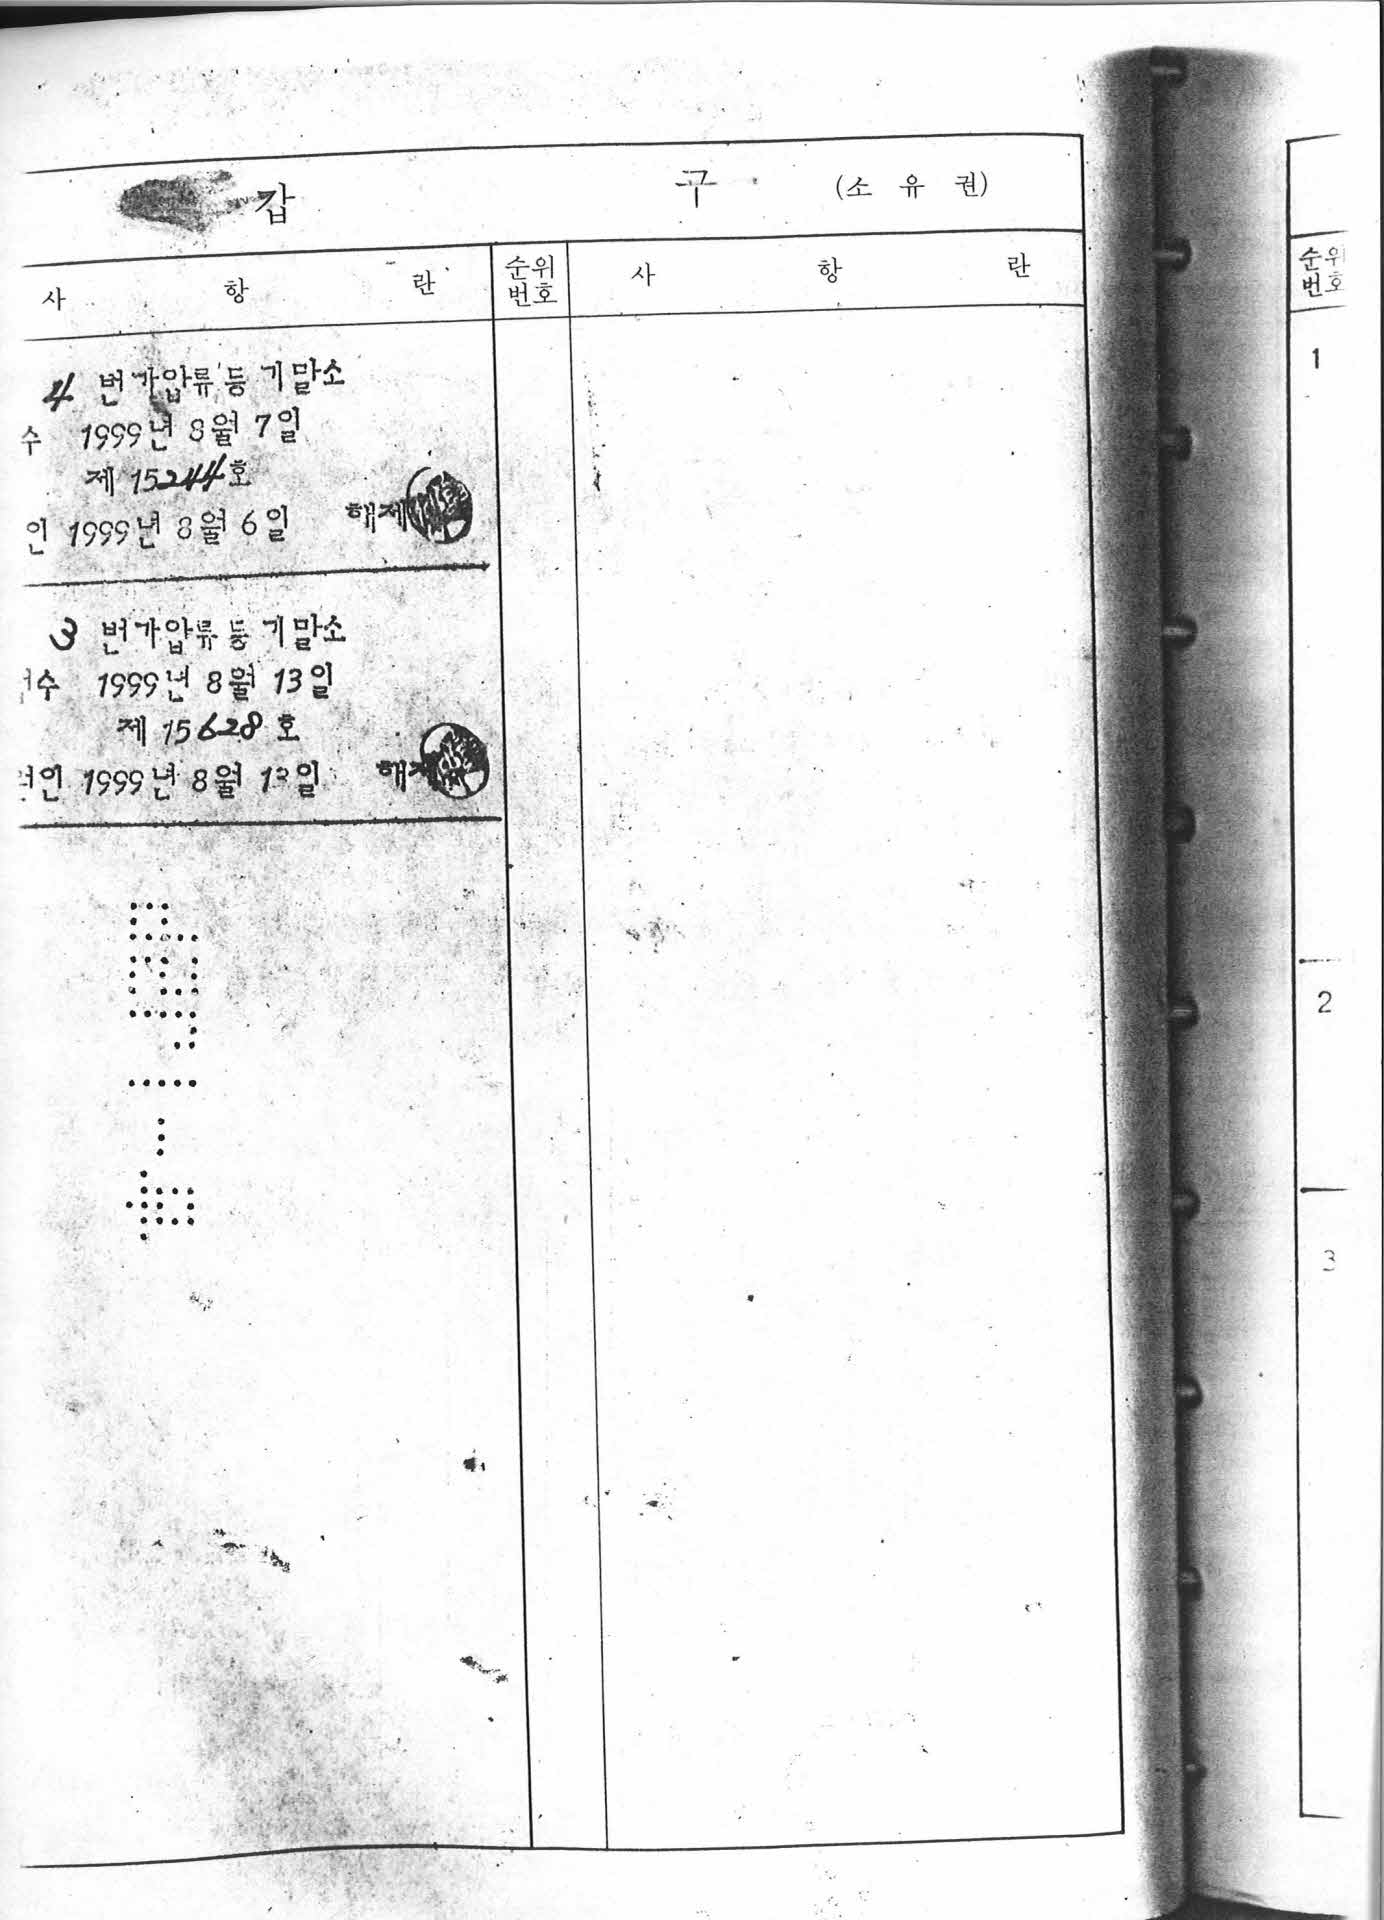 갑 구 (소 유 권)
사 항 란 순위번호 사 항 란
4 번가압류등기말소
수 1999년 8월 7일
제15244호
인 1999년 8월 6일 해제
3 번가압류등기말소
수 1999년 8월 13일
제15628호
인 1999년 8월 일
순위
번호
1
2
3